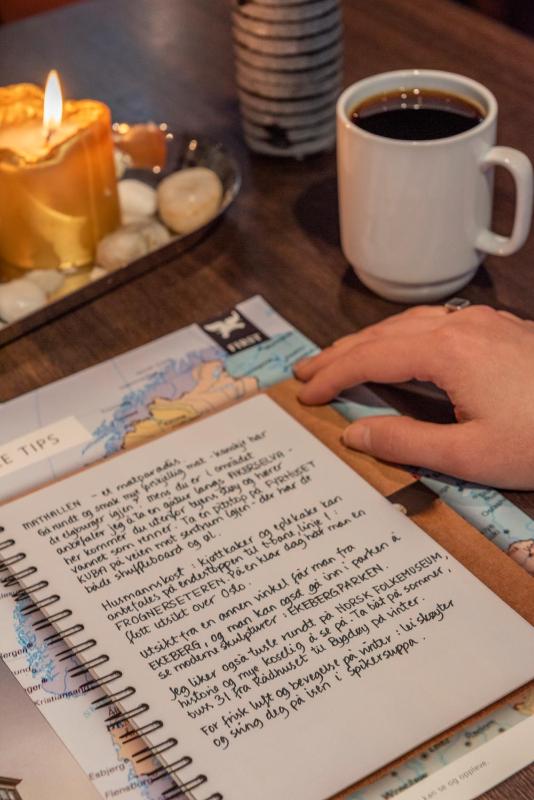 FIRST
E TIPS
MATHALLEN - et matparadis.
Gå rundt og smak mye forskjellig mat - kanskje har
de elgburger igjen? Mens du er i området
anbefaler jeg å ta en gåtur langs AKERSELVA -
her kommer du utenfor byens støy og hører
vannet som renner. Ta en pitstop på FYRHUSET
KUBA på veien mot sentrum igjen - der har de
både shuffleboard og øl.
Husmannskost: kjøttkaker og eplekake kan
anbefales på endestoppen til t-bane linje 1:
FROGNERSETEREN. På en klar dag har man en
flott utsikt over Oslo.
Utsikt fra en annen vinkel får man fra
EKEBERG, og man kan også gå inn i parken å
se moderne skulpturer: EKEBERGPARKEN.
Jeg liker også tusle rundt på NORSK FOLKEMUSEUM,
historie og mye koselig å se på. Ta båt på sommer,
buss 31 fra Rådhuset til Bygdøy på vinter.
For frisk luft og bevegelse på vinter: lei skøyter
og sving deg på isen i Spikersuppa.
Kristiansand
Esbjerg
Flensburg
kan se og oppleve.